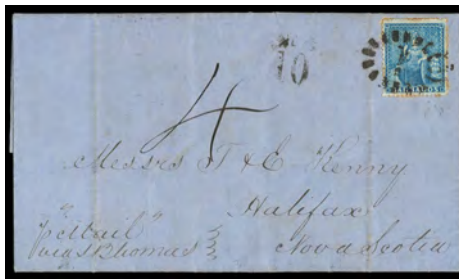 10
4
Messrs T & E Kenny
Halifax
Nova Scotia
"pr Mail"
via St Thomas